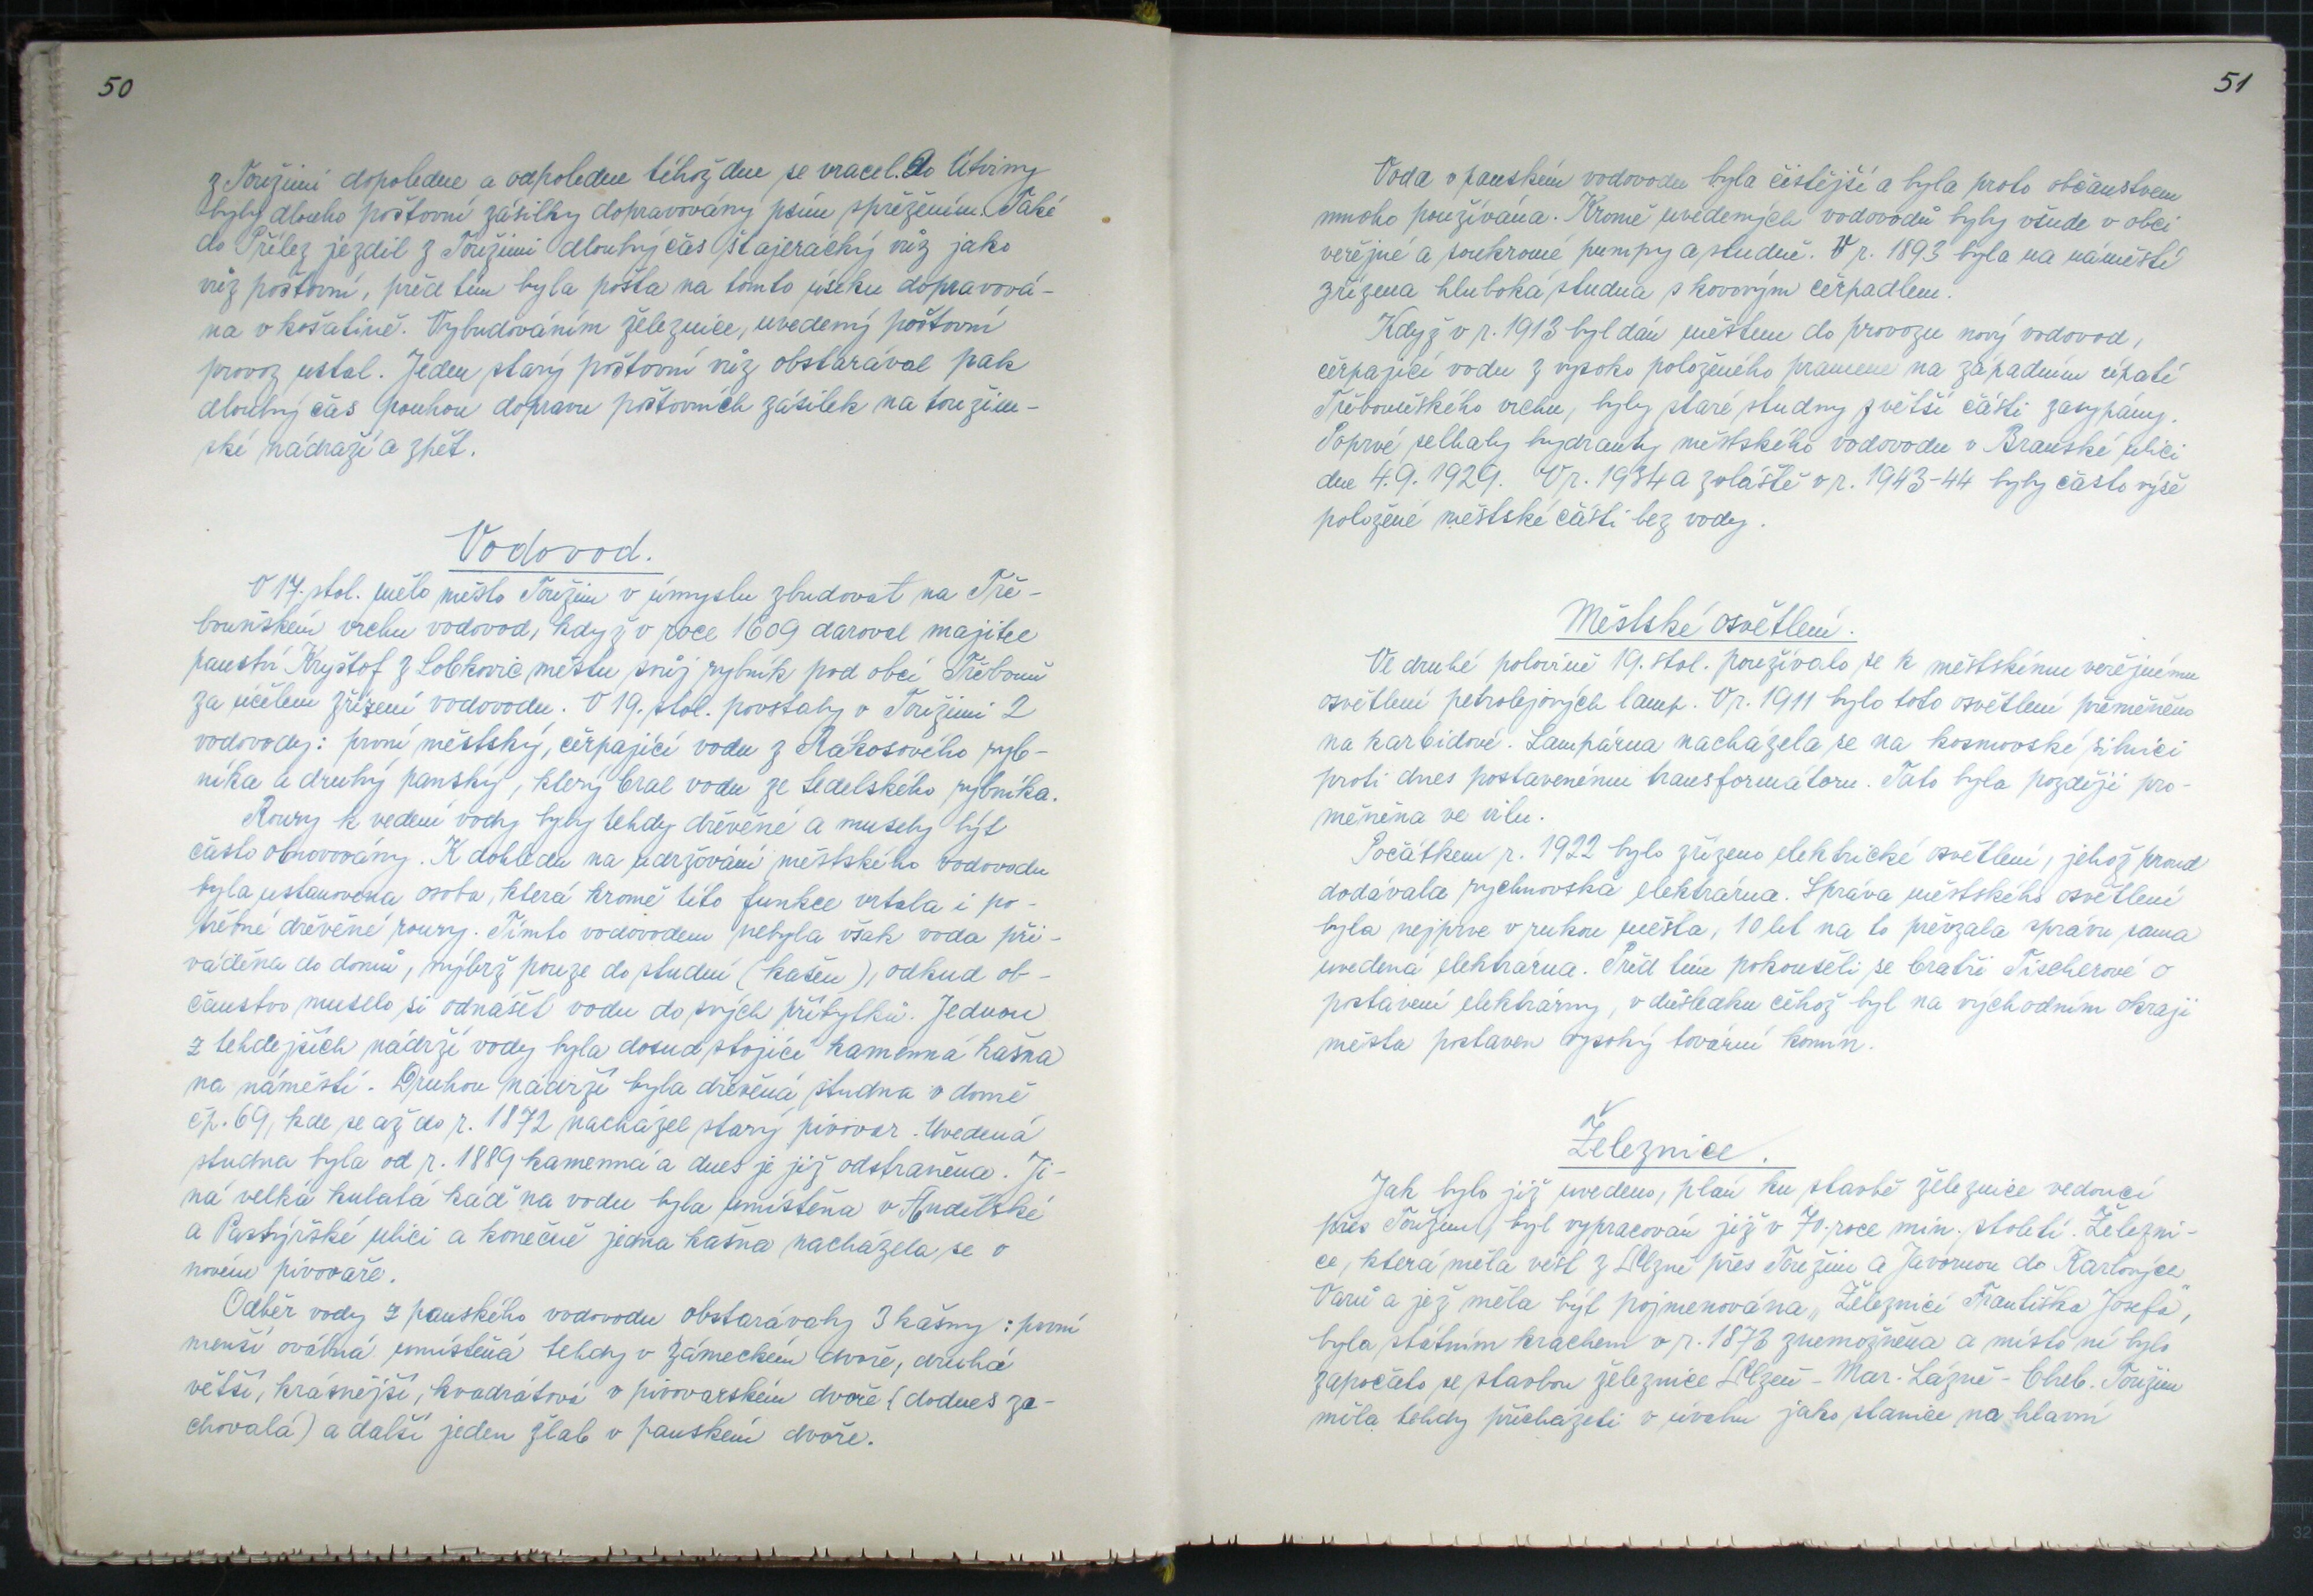 50
z Toužimi dopoledne a odpoledne téhož dne se vracel. Do Útviny
byly dlouho poštovní zásilky dopravovány psím spřežením. Také
do Přílez jezdil z Toužimi dlouhý čas štajerácký vůz jako
vůz poštovní, před tím byla pošta na tomto úseku dopravová-
na v košatině. Vybudováním železnice, uvedený poštovní
provoz ustal. Jeden starý poštovní vůz obstarával pak
dlouhý čas pouhou dopravu poštovních zásilek na toužim-
ské nádraží a zpět.
Vodovod.
V 17. stol. mělo město Toužim v úmyslu zbudovat na Tře-
bouňském vrchu vodovod, když v roce 1609 daroval majitel
panství Kryštof z Lobkovic městu svůj rybník pod obcí Třebouň
za účelem zřízení vodovodu. V 19. stol. povstaly v Toužimi 2
vodovody: první městský, čerpající vodu z Rákosového ryb-
níka a druhý panský, který bral vodu ze sedelského rybníka.
Roury k vedení vody byly tehdy dřevěné a musely být
často obnovovány. K dohledu na udržování městského vodovodu
byla ustanovena osoba, která kromě této funkce vrtala i po-
třebné dřevěné roury. Tímto vodovodem nebyla však voda při-
váděna do domů, nýbrž pouze do studní (kašen), odkud ob-
čanstvo muselo si odnášet vodu do svých příbytků. Jednou
z tehdejších nádrží vody byla dosud stojící kamenná kašna
na náměstí. Druhou nádrží byla dřevěná studna v domě
čp. 69, kde se až do r. 1872 nacházel starý pivovar. Uvedená
studna byla od r. 1889 kamenná a dnes je již odstraněna. Ji-
ná velká kulatá káď na vodu byla umístěna v Andělské
a Pastýřské ulici a konečně jedna kašna nacházela se v
novém pivovaře.
Odběr vody z panského vodovodu obstarávaly 3 kašny: první
menší oválná umístěná tehdy v zámeckém dvoře, druhá
větší, krásnější, kvadrátová v pivovarském dvoře (dodnes za-
chovalá) a další jeden žlab v panském dvoře.
51
Voda v panském vodovodu byla čistější a byla proto občanstvem
mnoho používána. Kromě uvedených vodovodů byly všude v obci
veřejné a soukromé pumpy a studně. V r. 1893 byla na náměstí
zřízena hluboká studna s kovovým čerpadlem.
Když v r. 1913 byl dán městem do provozu nový vodovod,
čerpající vodu z vysoko položeného pramene na západním úpatí
Třebouňského vrchu, byly staré studny z větší části zasypány.
Poprvé selhaly hydranty městského vodovodu v Branské ulici
dne 4.9.1929. V r. 1934 a zvláště v r. 1943-44 byly často výše
položené městské části bez vody.
Městské osvětlení.
Ve druhé polovině 19. stol. používalo se k městskému veřejnému
osvětlení petrolejových lamp. V r. 1911 bylo toto osvětlení přeměněno
na karbidové. Lampárna nacházela se na kosmovské silnici
proti dnes postavenému transformátoru. Tato byla později pro-
měněna ve vilu.
Počátkem r. 1922 bylo zřízeno elektrické osvětlení, jehož proud
dodávala rychnovská elektrárna. Správa městského osvětlení
byla nejprve v rukou města, 10 let na to převzala správu sama
uvedená elektrárna. Před tím pokoušeli se bratři Tischerové o
postavení elektrárny, v důsledku čehož byl na východním okraji
města postaven vysoký tovární komín.
Železnice.
Jak bylo již uvedeno, plán ku stavbě železnice vedoucí
přes Toužim, byl vypracován již v 70. roce min. století. Železni-
ce, která měla vést z Plzně přes Toužim a Javornou do Karlových
Varů a jež měla být pojmenována „Železnicí Františka Josefa",
byla státním krachem v r. 1873 znemožněna a místo ní bylo
započato se stavbou železnice Plzeň - Mar. Lázně - Cheb. Toužim
měla tehdy přicházeti v úvahu jako stanice na hlavní